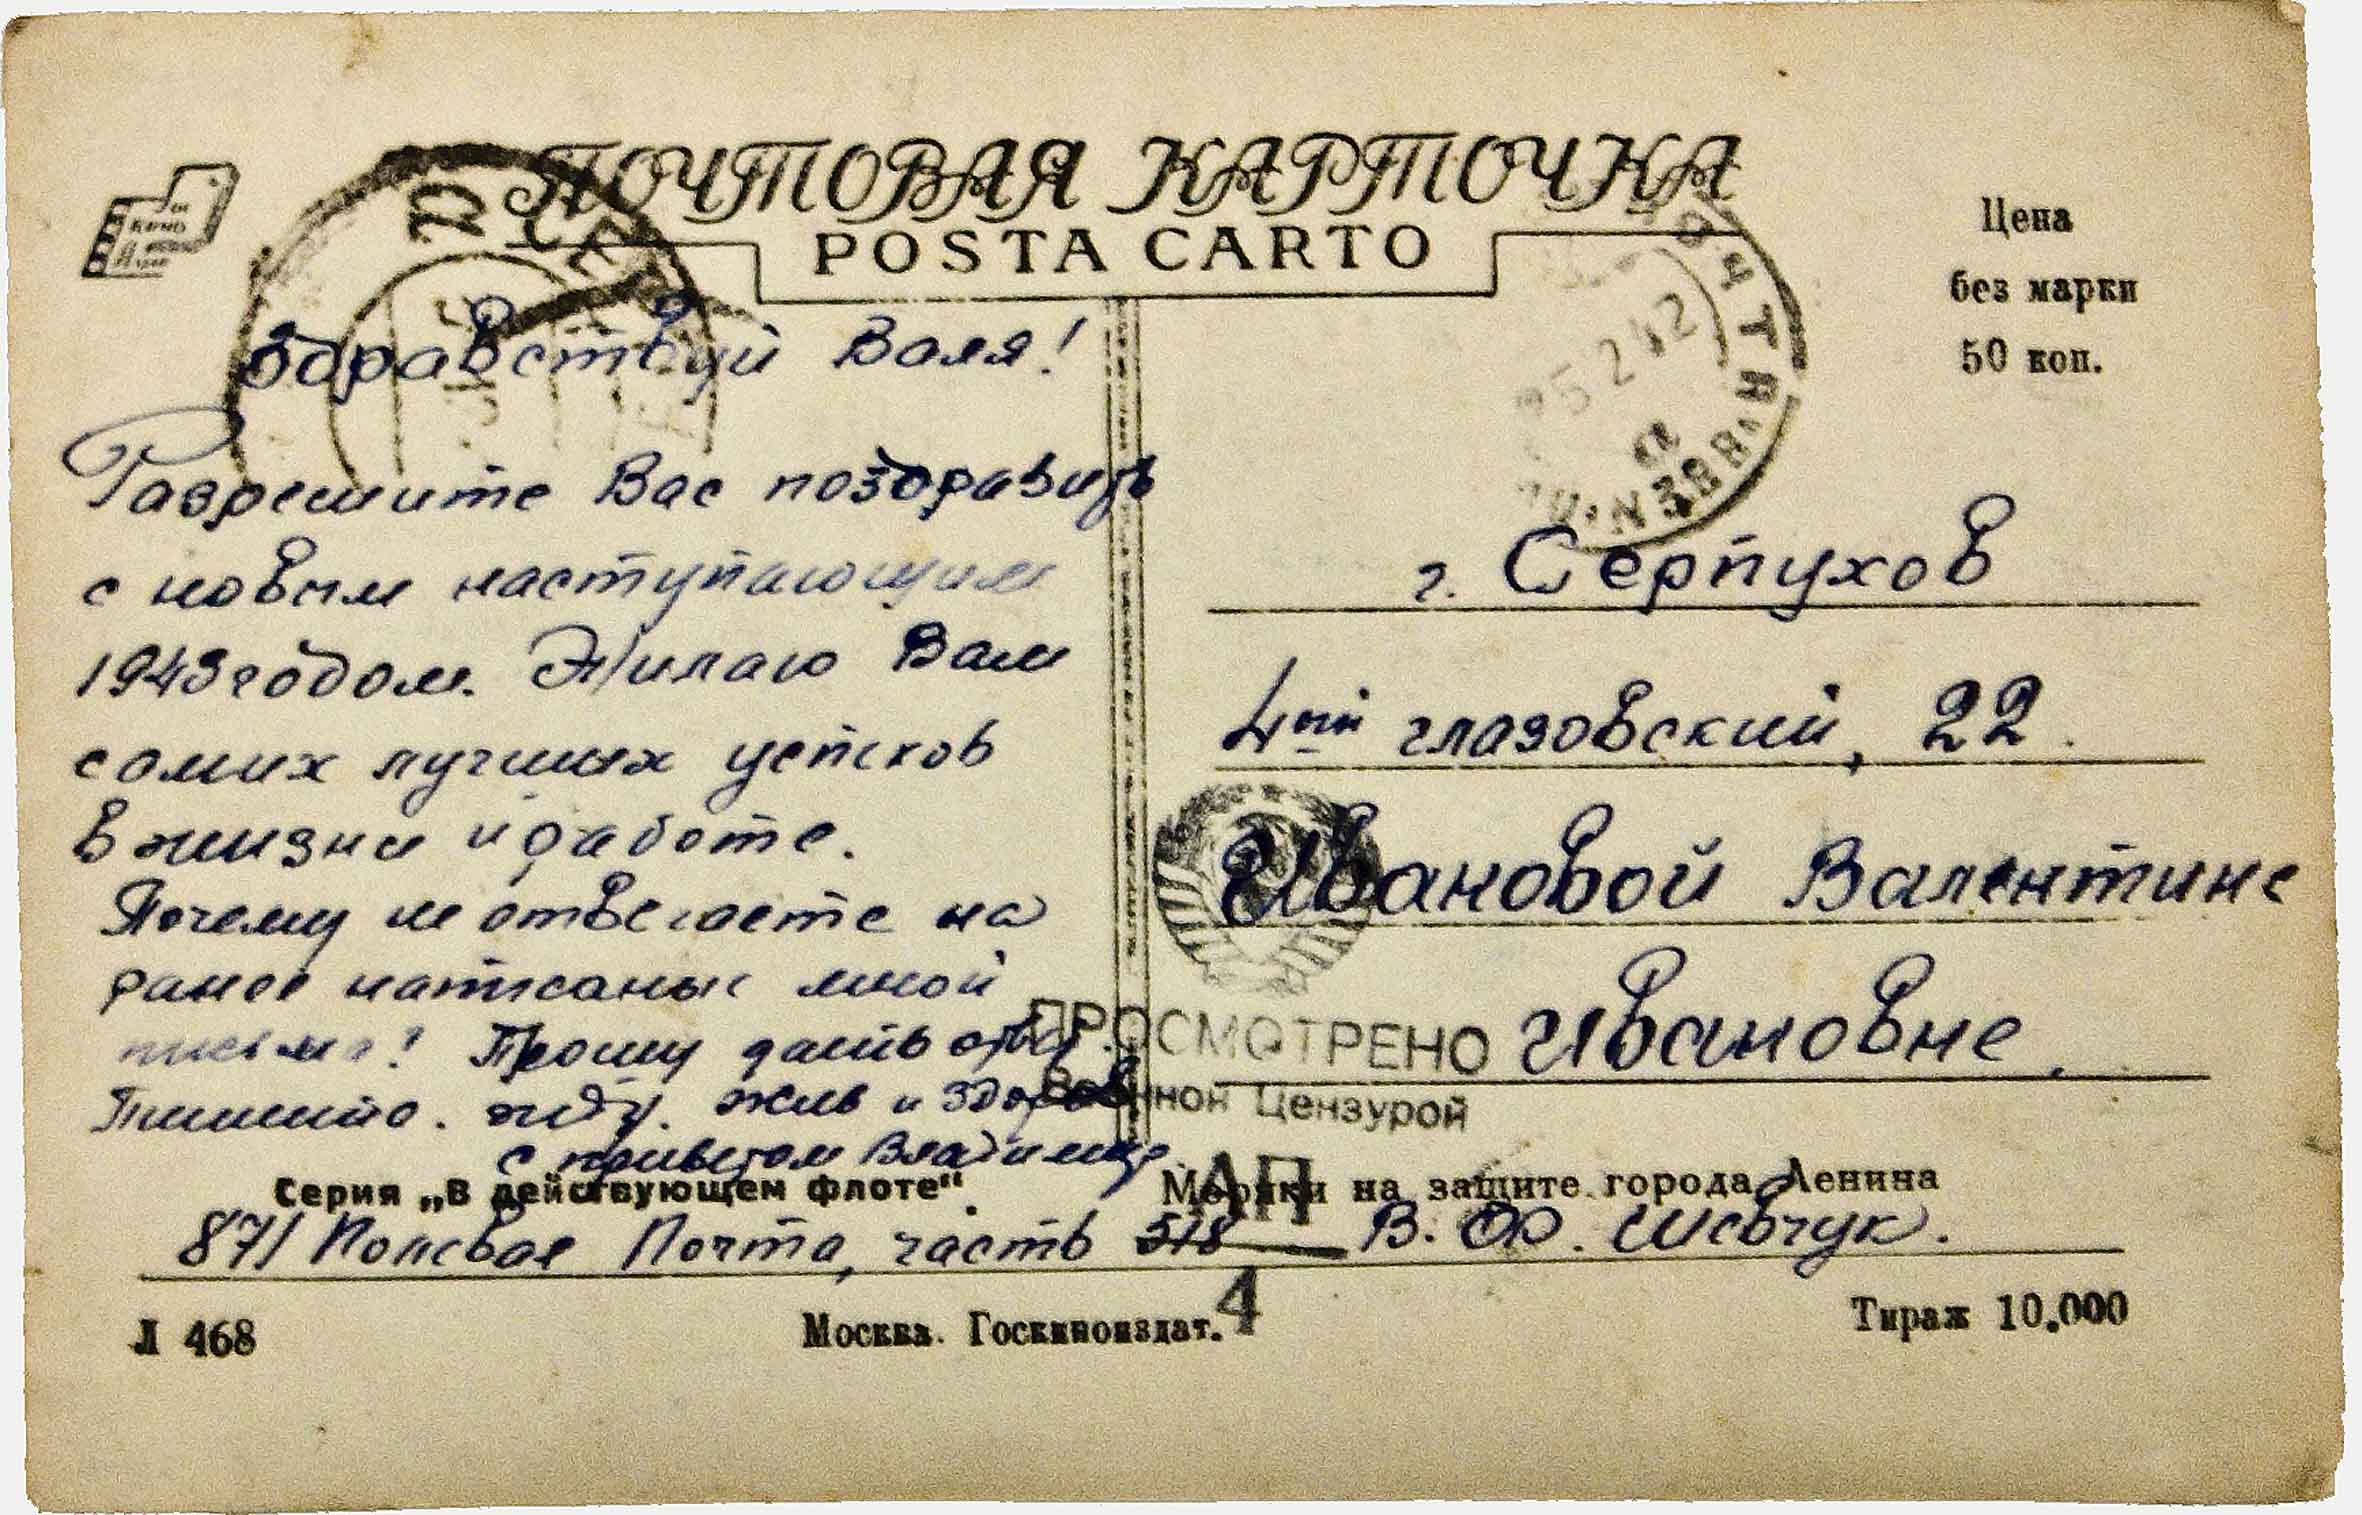 ПОЧТОВАЯ КАРТОЧКА
POSTA CARTO
Цена
без марки
50 коп.
Здравствуй Валя!
Разрешите Вас поздравить
с новым наступающим
1943 годом. Жилаю Вам
самих лучших успехов
в жизни и работе.
Почему не отвечаете на
ранее написаные мной
письма! Прошу дать ответ.
Пишите. жду. жив и здоров
с приветом Владимир
ПОЧТА
25 2 42
г. Серпухов
4ый глазовский, 22.
Ивановой Валентине
Ивановне.
ПРОСМОТРЕНО
Военной Цензурой
Серия „В действующем флоте“.
Моряки на защите города Ленина
871 Полевая Почта, часть 518 — В. Ф. Шевчук.
4
Л 468
Москва. Госкиноиздат.
Тираж 10.000